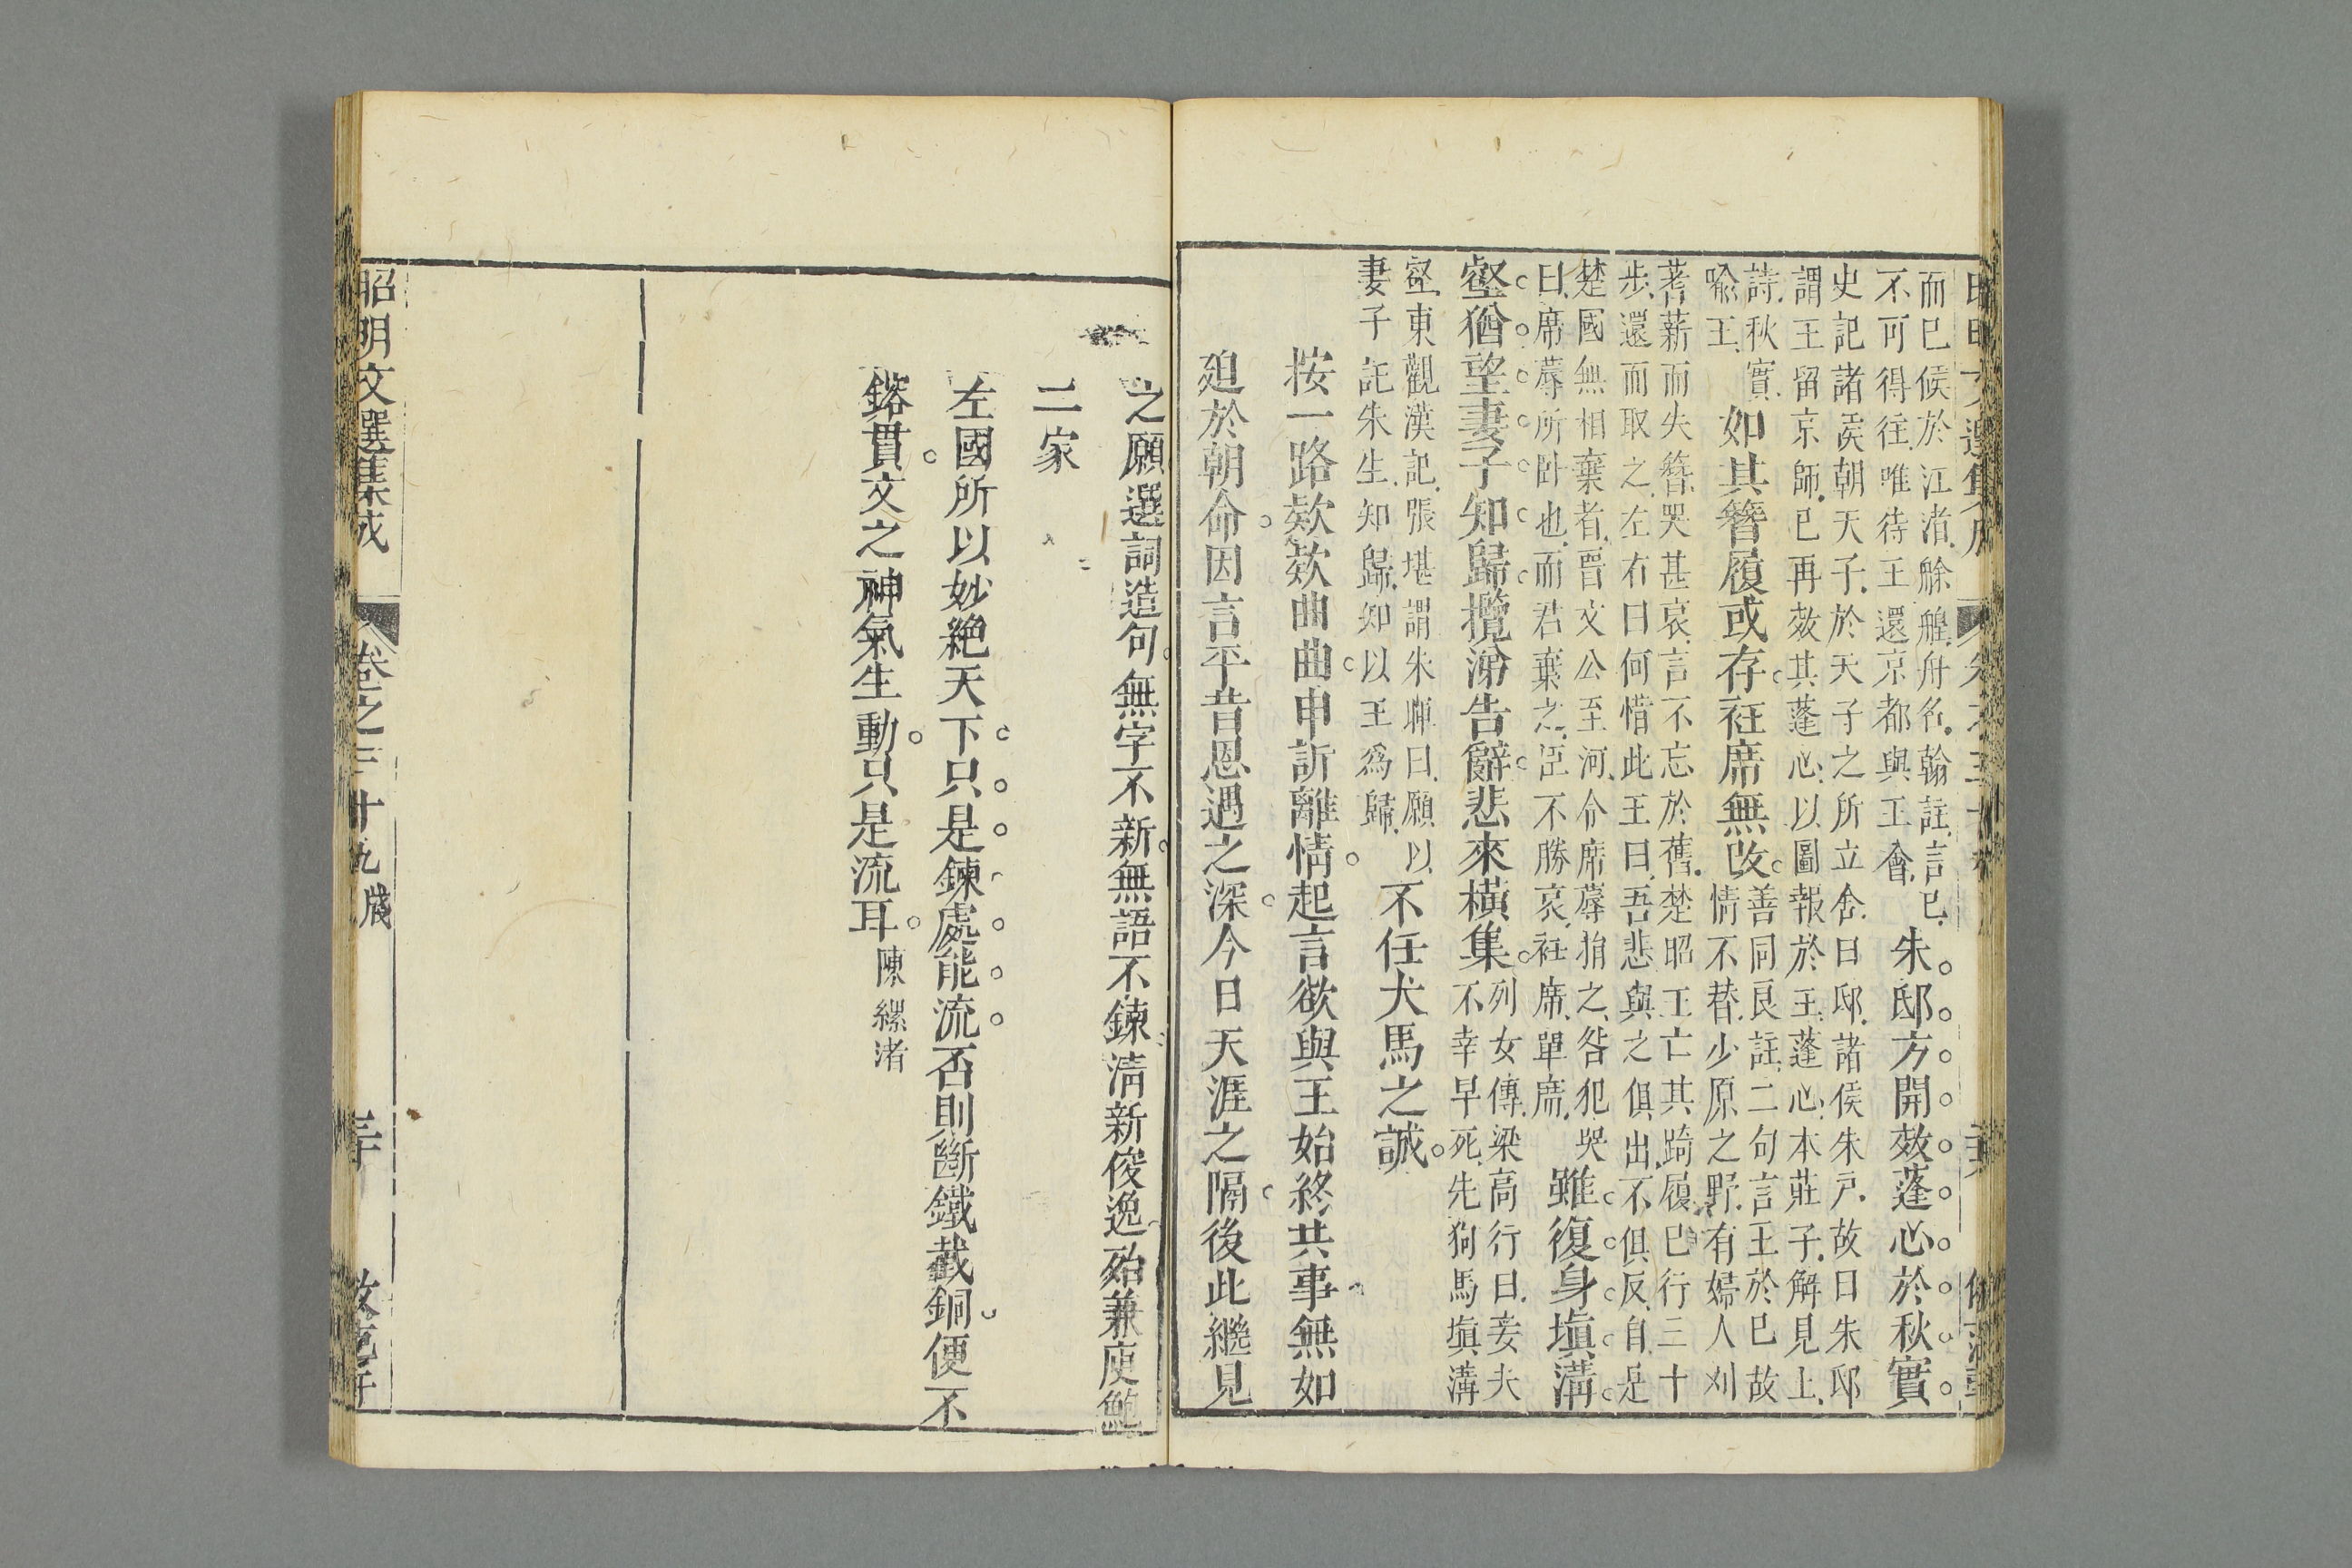 而已候於江渚艅艎舟名翰註言已
不可得往唯待王還京都與王會
朱邸方開效蓬心於秋實
史記諸侯朝天子於天子之所立舍曰邸諸侯朱戸故曰朱邸
謂王留京師已再效其蓬心以圖報於王蓬心本莊子解見上
詩秋實
喻王
如其簪履或存衽席無改
善同良註二句言王於已故
情不替少原之野有婦人刈
蓍薪而失簪哭甚哀言不忘於舊楚昭王亡其踦履已行三十
步還而取之左右曰何惜此王曰吾悲與之俱出不俱反自是
楚國無相棄者晉文公至河令席蓐捐之咎犯哭
曰席蓐所卧也而君棄之臣不勝哀衽席單席
雖復身塡溝
壑猶望妻子知歸攬涕告辭悲來橫集
列女傳梁高行曰妾夫
不幸早死先狗馬塡溝
壑東觀漢記張堪謂朱暉曰願以
妻子託朱生知歸知以王爲歸
不任犬馬之誠
按一路欵欵曲曲申訴離情起言欲與王始終共事無如
廹於朝命因言平昔恩遇之深今日天涯之隔後此繼見
之願選詞造句無字不新無語不鍊淸新俊逸殆兼庾鮑
二家
左國所以妙絶天下只是鍊處能流否則斷鐵截銅便不
鎔貫文之神氣生動只是流耳陳縲渚
昭明文選集成
卷之三十九牋